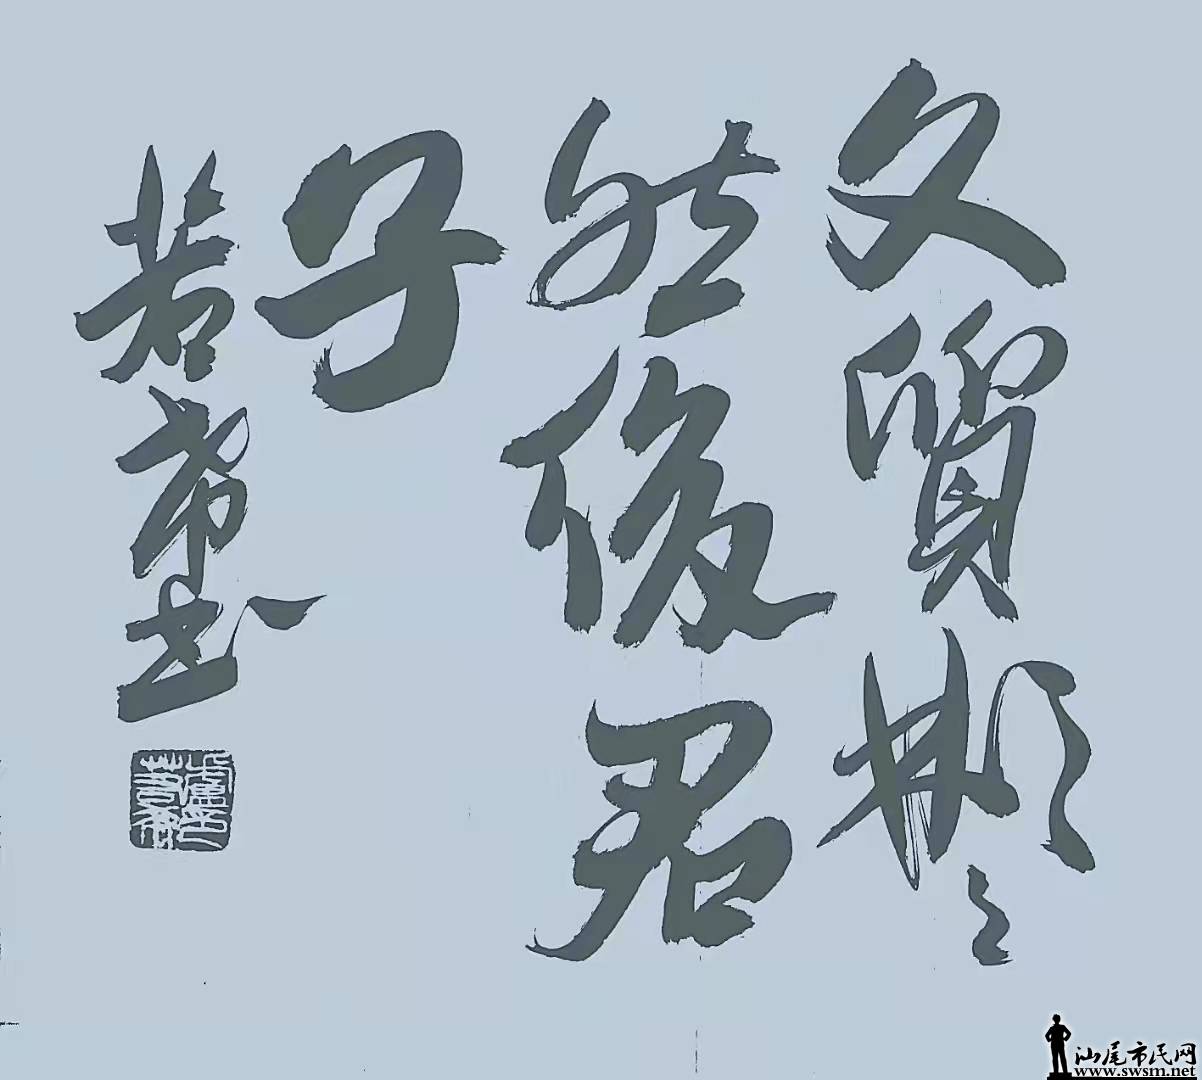 文質彬〻
然後君
子
若希書
汕尾市民网
www.swsm.net